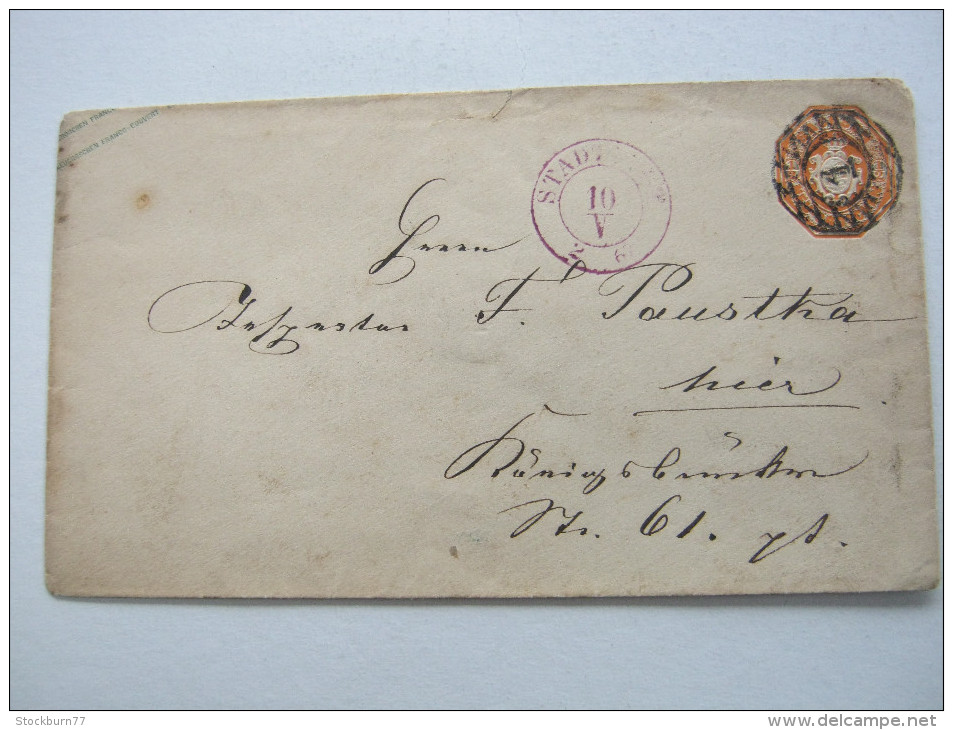 STADT
10
V
2
Herrn
Inspector F. Paustka
hier
Königsbrücker
Str. 61. pt.
Stockburn77
www.delcampe.net